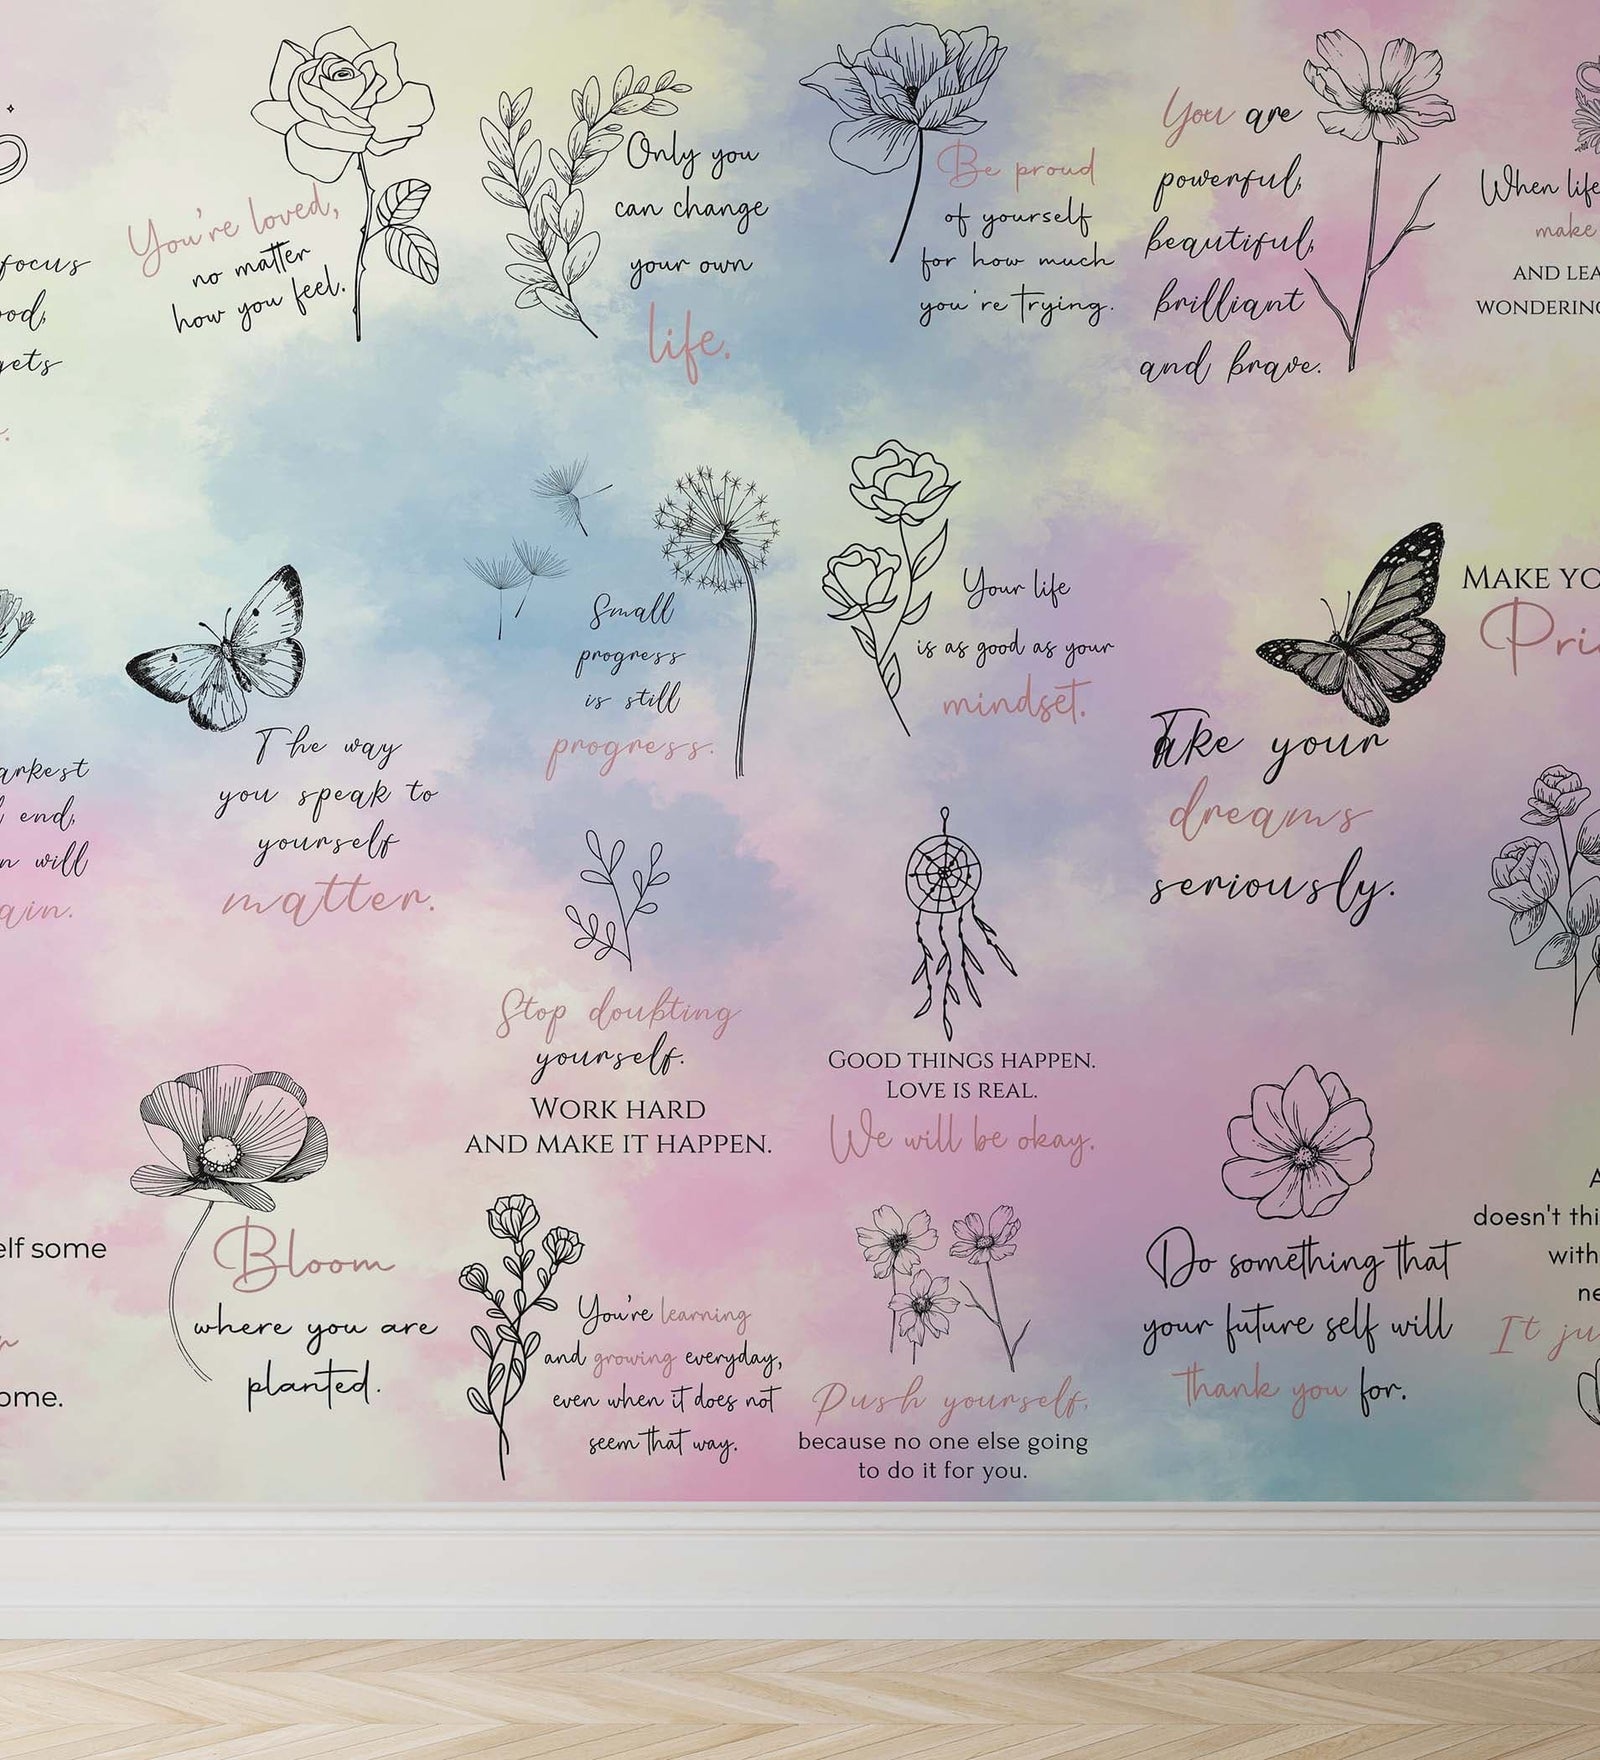 focus
gets
arkest
end,
will
elf some
You're loved,
no matter
how you feel.
Only you
can change
your own
life.
Be proud
of yourself
for how much
you're trying.
You are
powerful,
beautiful,
brilliant
and brave.
When life
make
AND LEA
WONDERING
The way
you speak to
yourself
matter.
Small
progress
is still
progress.
Your life
is as good as your
mindset.
Take your
dreams
seriously.
MAKE YO
Pri
Stop doubting
yourself.
WORK HARD
AND MAKE IT HAPPEN.
GOOD THINGS HAPPEN.
LOVE IS REAL.
We will be okay.
Bloom
where you are
planted.
You're learning
and growing everyday,
even when it does not
seem that way.
Push yourself,
because no one else going
to do it for you.
Do something that
your future self will
thank you for.
doesn't thi
with
ne
It ju
ome.